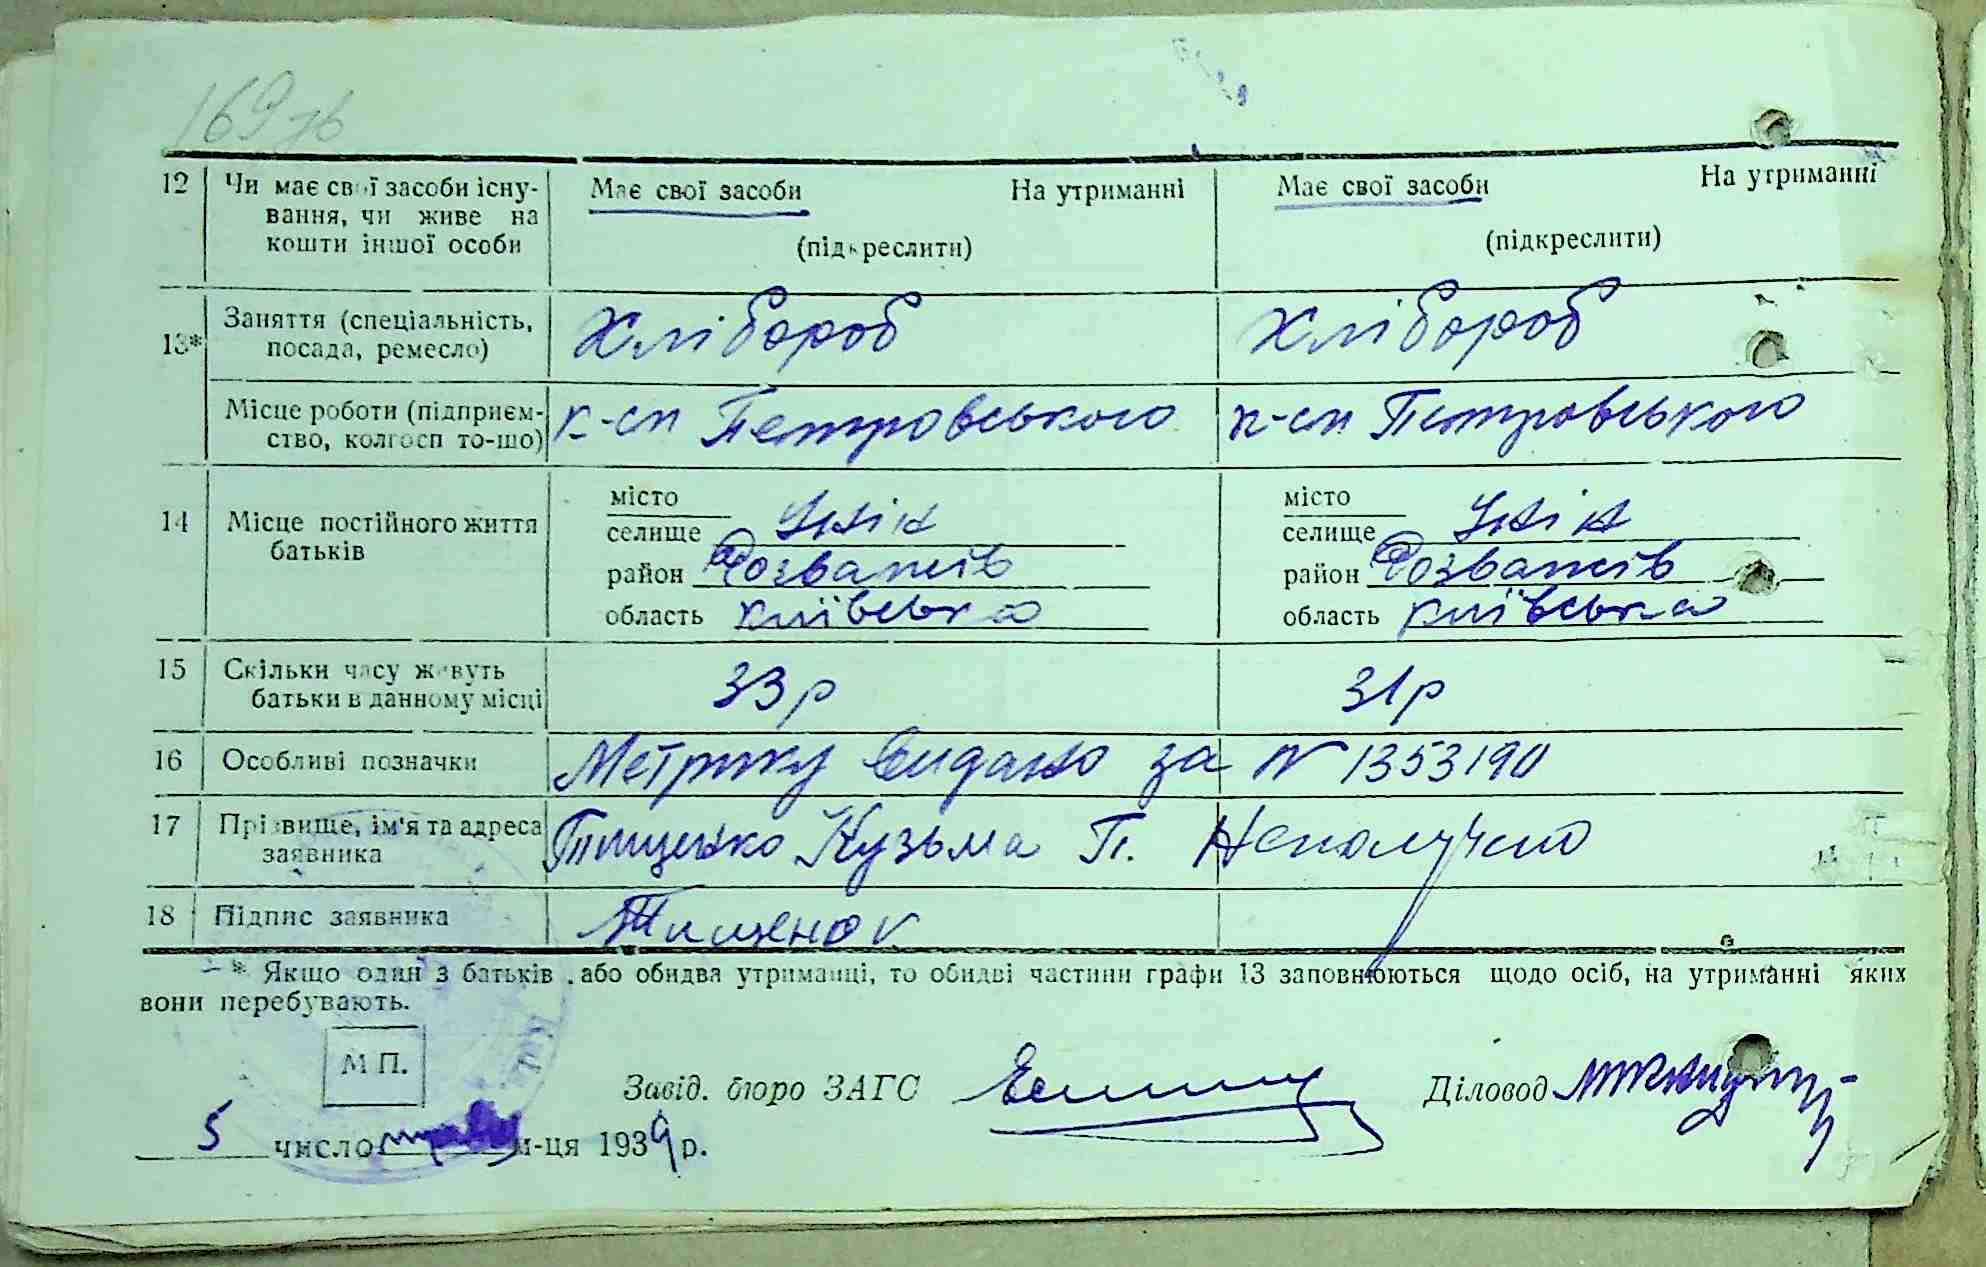 169зв
12 Чи має свої засоби існу- Має свої засоби На утриманні Має свої засоби На утриманні
вання, чи живе на
кошти іншої особи (підкреслити) (підкреслити)
13* Заняття (спеціальність, Хлібороб Хлібороб
посада, ремесло)
Місце роботи (підприєм- к-сп Петровського к-сп Петровського
ство, колгосп то-що)
14 Місце постійного життя місто місто
батьків селище селище
район Розважів район Розважів
область київська область київська
15 Скільки часу живуть 33 р 31 р
батьки в данному місці
16 Особливі позначки Метрику видано за N 1353190
17 Прізвище, ім'я та адреса Тищенко Кузьма П. Неполучено
заявника
18 Підпис заявника Тищенок
* Якщо один з батьків або обидва утриманці, то обидві частини графи 13 заповнюються щодо осіб, на утриманні яких
вони перебувають.
М П.
Завід. бюро ЗАГС Діловод
5 число м-ця 1939 р.